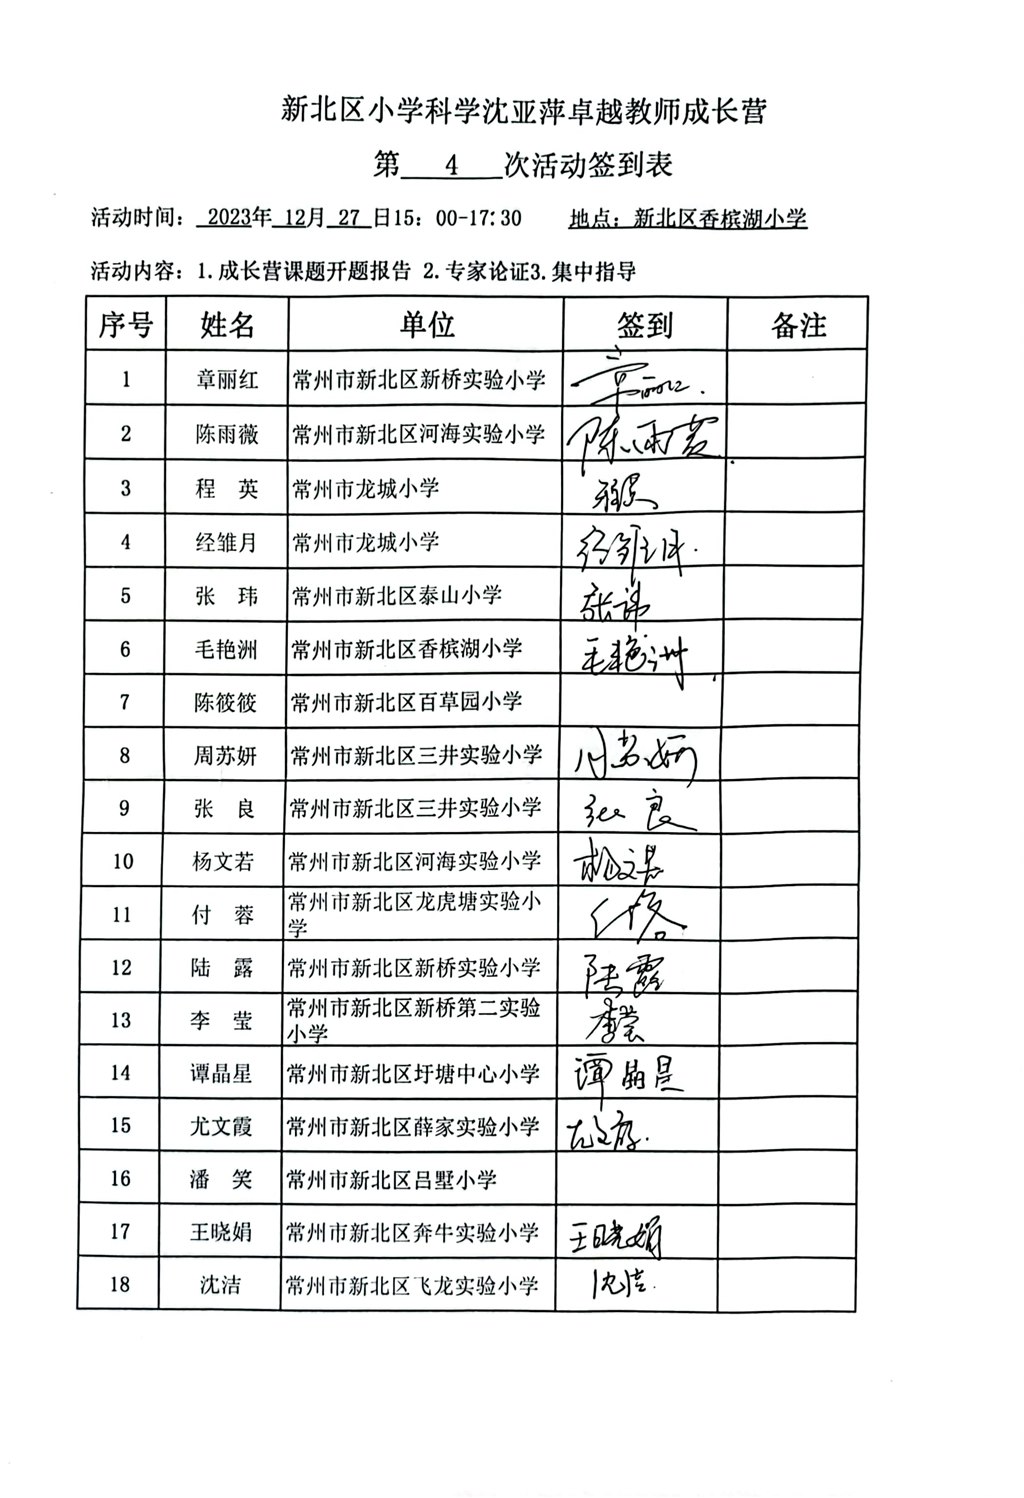 新北区小学科学沈亚萍卓越教师成长营
第 4 次活动签到表
活动时间：2023年 12月 27 日15：00-17:30 地点：新北区香槟湖小学
活动内容：1.成长营课题开题报告 2.专家论证3.集中指导
序号 姓名 单位 签到 备注
1 章丽红 常州市新北区新桥实验小学 章丽红.
2 陈雨薇 常州市新北区河海实验小学 陈雨薇.
3 程 英 常州市龙城小学 程英
4 经雏月 常州市龙城小学 经雏月.
5 张 玮 常州市新北区泰山小学 张玮
6 毛艳洲 常州市新北区香槟湖小学 毛艳洲.
7 陈筱筱 常州市新北区百草园小学
8 周苏妍 常州市新北区三井实验小学 周苏妍
9 张 良 常州市新北区三井实验小学 张良
10 杨文若 常州市新北区河海实验小学 杨文若
11 付 蓉 常州市新北区龙虎塘实验小 付蓉
学
12 陆 露 常州市新北区新桥实验小学 陆露
13 李 莹 常州市新北区新桥第二实验 李莹
小学
14 谭晶星 常州市新北区圩塘中心小学 谭晶星
15 尤文霞 常州市新北区薛家实验小学 尤文霞.
16 潘 笑 常州市新北区吕墅小学
17 王晓娟 常州市新北区奔牛实验小学 王晓娟
18 沈洁 常州市新北区飞龙实验小学 沈洁.